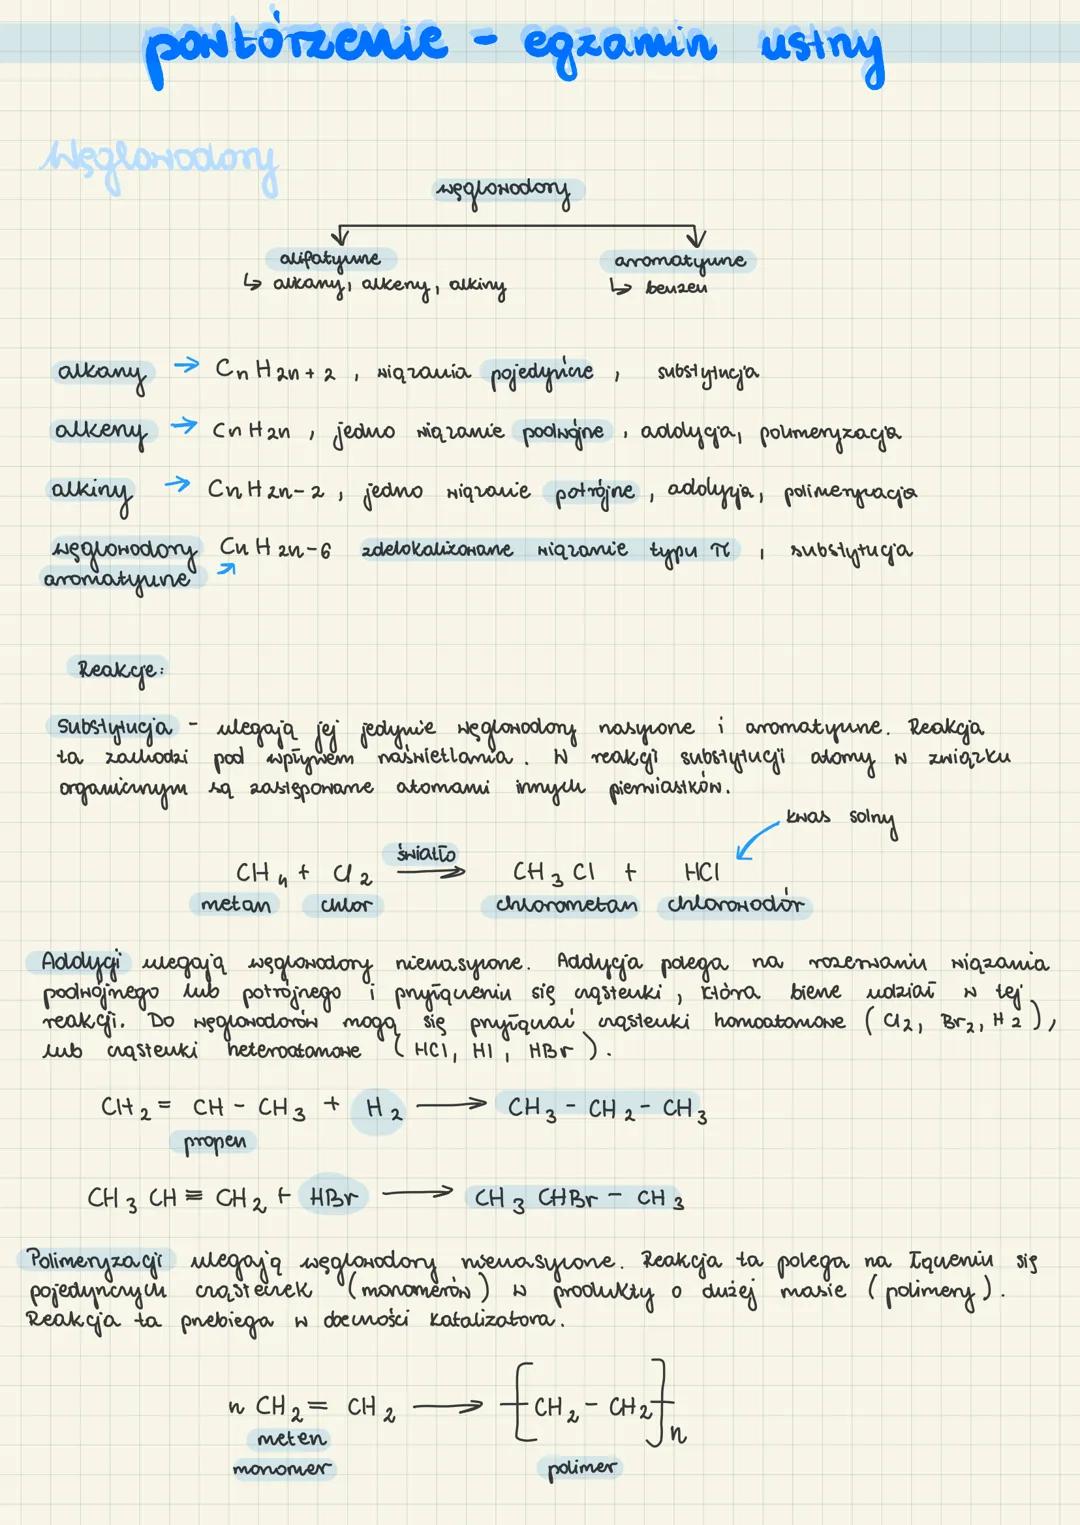 powtórzenie - egzamin ustny
Węglowodory
węglowodory
alifatyczne
aromatyczne
↳ alkany, alkeny, alkiny
↳ benzen
alkany → CnH2n+2, wiązania pojedyńcze, substytucja
alkeny → CnH2n, jedno wiązanie podwójne, addycja, polimeryzacja
alkiny → CnH2n-2, jedno wiązanie potrójne, addycja, polimeryzacja
węglowodory CnH2n-6 zdelokalizowane wiązanie typu π, substytucja
aromatyczne
Reakcje:
Substytucja - ulegają jej jedynie węglowodory nasycone i aromatyczne. Reakcja
ta zachodzi pod wpływem naświetlania. W reakcji substytucji atomy w związku
organicznym są zastępowane atomami innych pierwiastków.
kwas solny
światło
CH4 + Cl2 → CH3Cl + HCl
metan chlor chlorometan chlorowodór
Addycji ulegają węglowodory nienasycone. Addycja polega na rozerwaniu wiązania
podwójnego lub potrójnego i przyłączeniu się cząsteczki, która bierze udział w tej
reakcji. Do węglowodorów mogą się przyłączać cząsteczki homoatomowe (Cl2, Br2, H2),
lub cząsteczki heteroatomowe (HCl, HI, HBr).
CH2 = CH - CH3 + H2 → CH3 - CH2 - CH3
propen
CH3 CH ≡ CH2 + HBr → CH3 CHBr - CH3
Polimeryzacji ulegają węglowodory nienasycone. Reakcja ta polega na łączeniu się
pojedynczych cząsteczek (monomerów) w produkty o dużej masie (polimery).
Reakcja ta przebiega w obecności katalizatora.
n CH2 = CH2 → [CH2 - CH2]n
meten
monomer
polimer